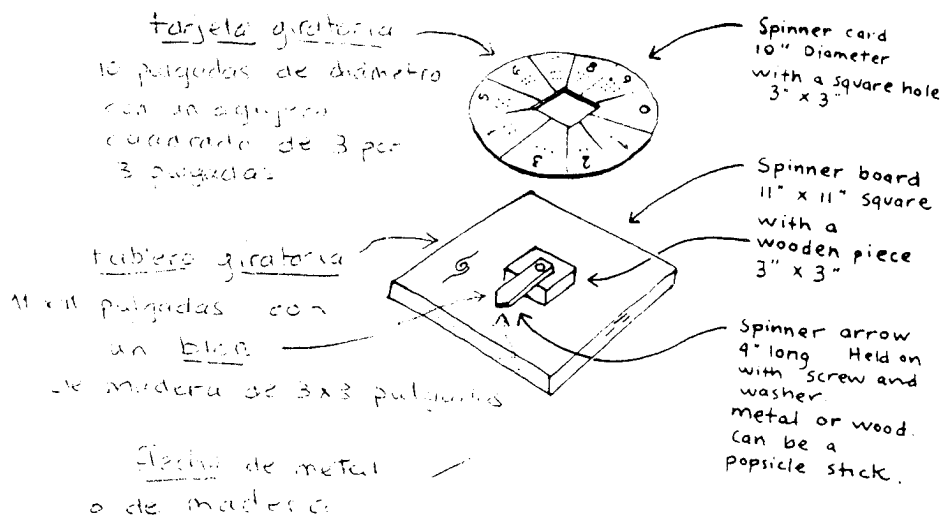 tarjeta giratoria
10 pulgadas de diámetro
con un agujero
cuadrado de 3 por
3 pulgadas
tablero giratoria
11 x 11 pulgadas con
un
de madera de 3x3 pulgadas
flecha de metal
o de madera
Spinner card
10" Diameter
with a square hole
3" x 3"
Spinner board
11" x 11" square
with a
wooden piece
3" x 3"
Spinner arrow
4" long Held on
with screw and
washer.
metal or wood.
can be a
popsicle stick.
0
1
2
3
5
6
8
9